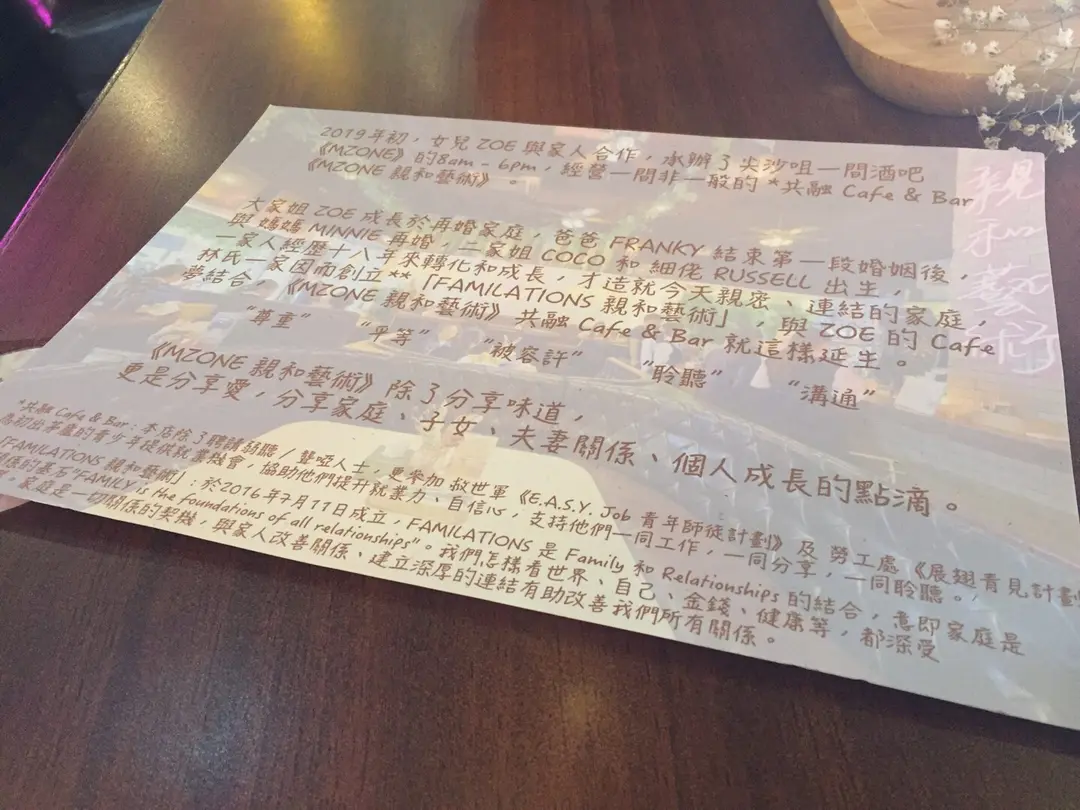 2019年初，女兒 ZOE 與家人合作，承辦了尖沙咀一間酒吧
《MZONE》的8am - 6pm，經營一間非一般的 *共融 Cafe & Bar
《MZONE 親和藝術》。
親和藝術
大家姐 ZOE 成長於再婚家庭，爸爸 FRANKY 結束第一段婚姻後，
與媽媽 MINNIE 再婚，二家姐 COCO 和細佬 RUSSELL 出生，
一家人經歷十八年來轉化和成長，才造就今天親密、連結的家庭，
林氏一家因而創立**「FAMILATIONS 親和藝術」，與 ZOE 的 Cafe
夢結合，《MZONE 親和藝術》共融 Cafe & Bar 就這樣延生。
“尊重” “平等” “被容許” “聆聽” “溝通”
《MZONE 親和藝術》除了分享味道，
更是分享愛，分享家庭、子女、夫妻關係、個人成長的點滴。
*共融 Cafe & Bar：本店除了聘請弱聽/聾啞人士，更參加 救世軍《E.A.S.Y. Job 青年師徒計劃》及 勞工處《展翅青見計劃
為初出茅廬的青少年提供就業機會，協助他們提升就業力、自信心，支持他們一同工作，一同分享，一同聆聽。
「FAMILATIONS 親和藝術」：於2016年7月11日成立，FAMILATIONS 是 Family 和 Relationships 的結合，意即家庭是
的基石“FAMILY is the foundations of all relationships”。我們怎樣看世界、自己、金錢、健康等，都深受
。家庭是一切關係的契機，與家人改善關係、建立深厚的連結有助改善我們所有關係。